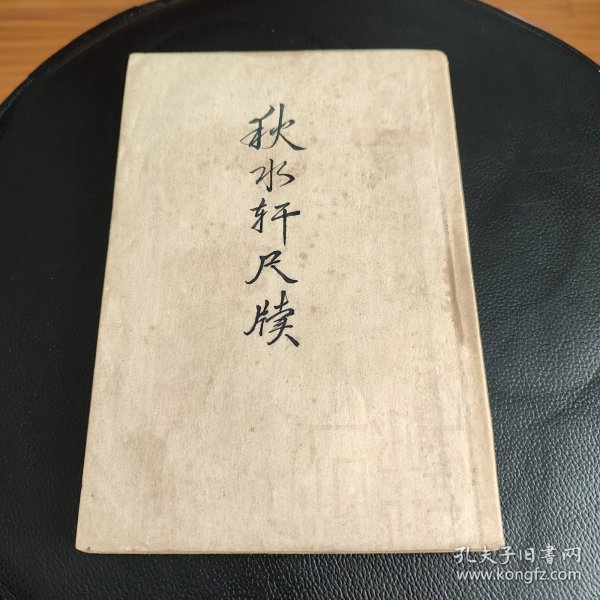 秋水轩尺牍
孔夫子旧書网
www.kongfz.com